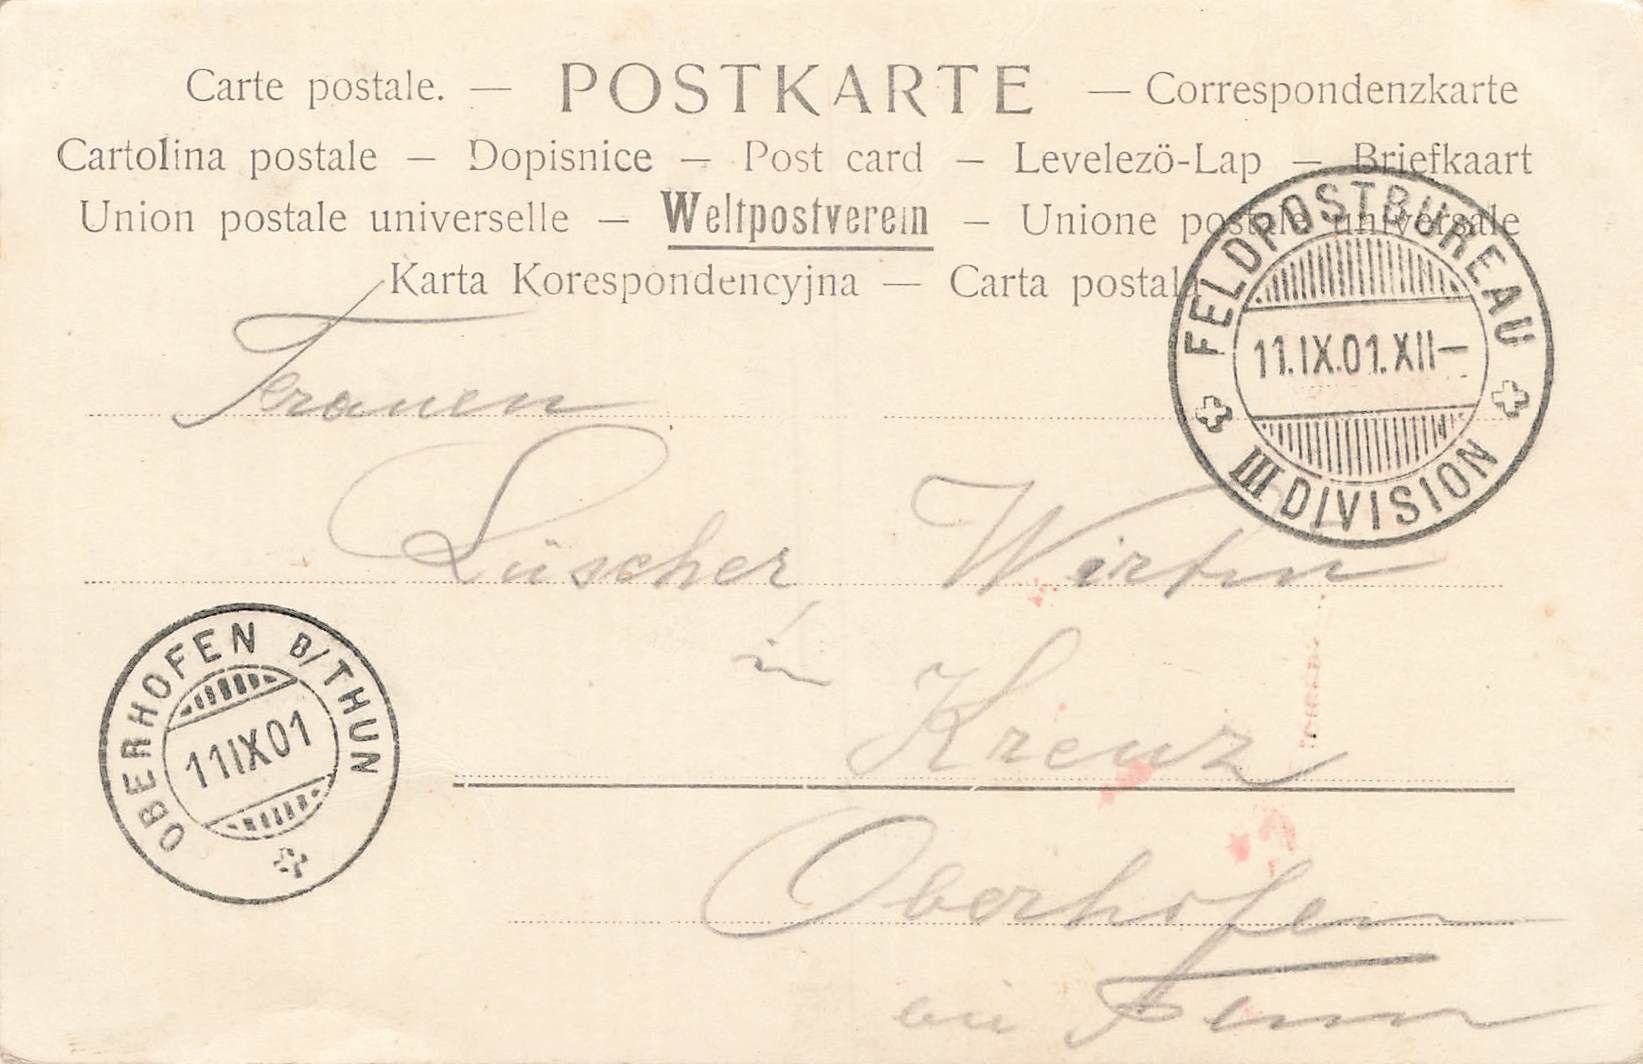 Carte postale. — POSTKARTE — Correspondenzkarte
Cartolina postale – Dopisnice – Post card – Levelezö-Lap – Briefkaart
Union postale universelle – Weltpostverein – Unione postale universale
Karta Korespondencyjna — Carta postala
FELDPOSTBUREAU
11.IX.01.XII–
III DIVISION
Frauen
Lüscher, Wirtin
in Kreuz
OBERHOFEN B/THUN
11IX01
Oberhofen